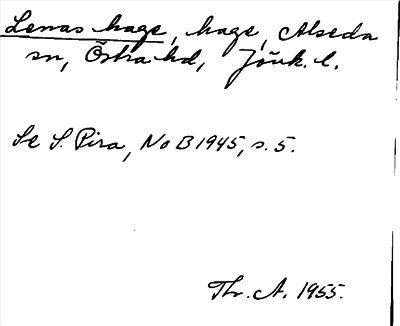 Lenas hage, hage, Alseda
sn, Östra hd, Jönk. l.
Se S. Pira, No B 1945, s. 5.
Thr. A. 1955.